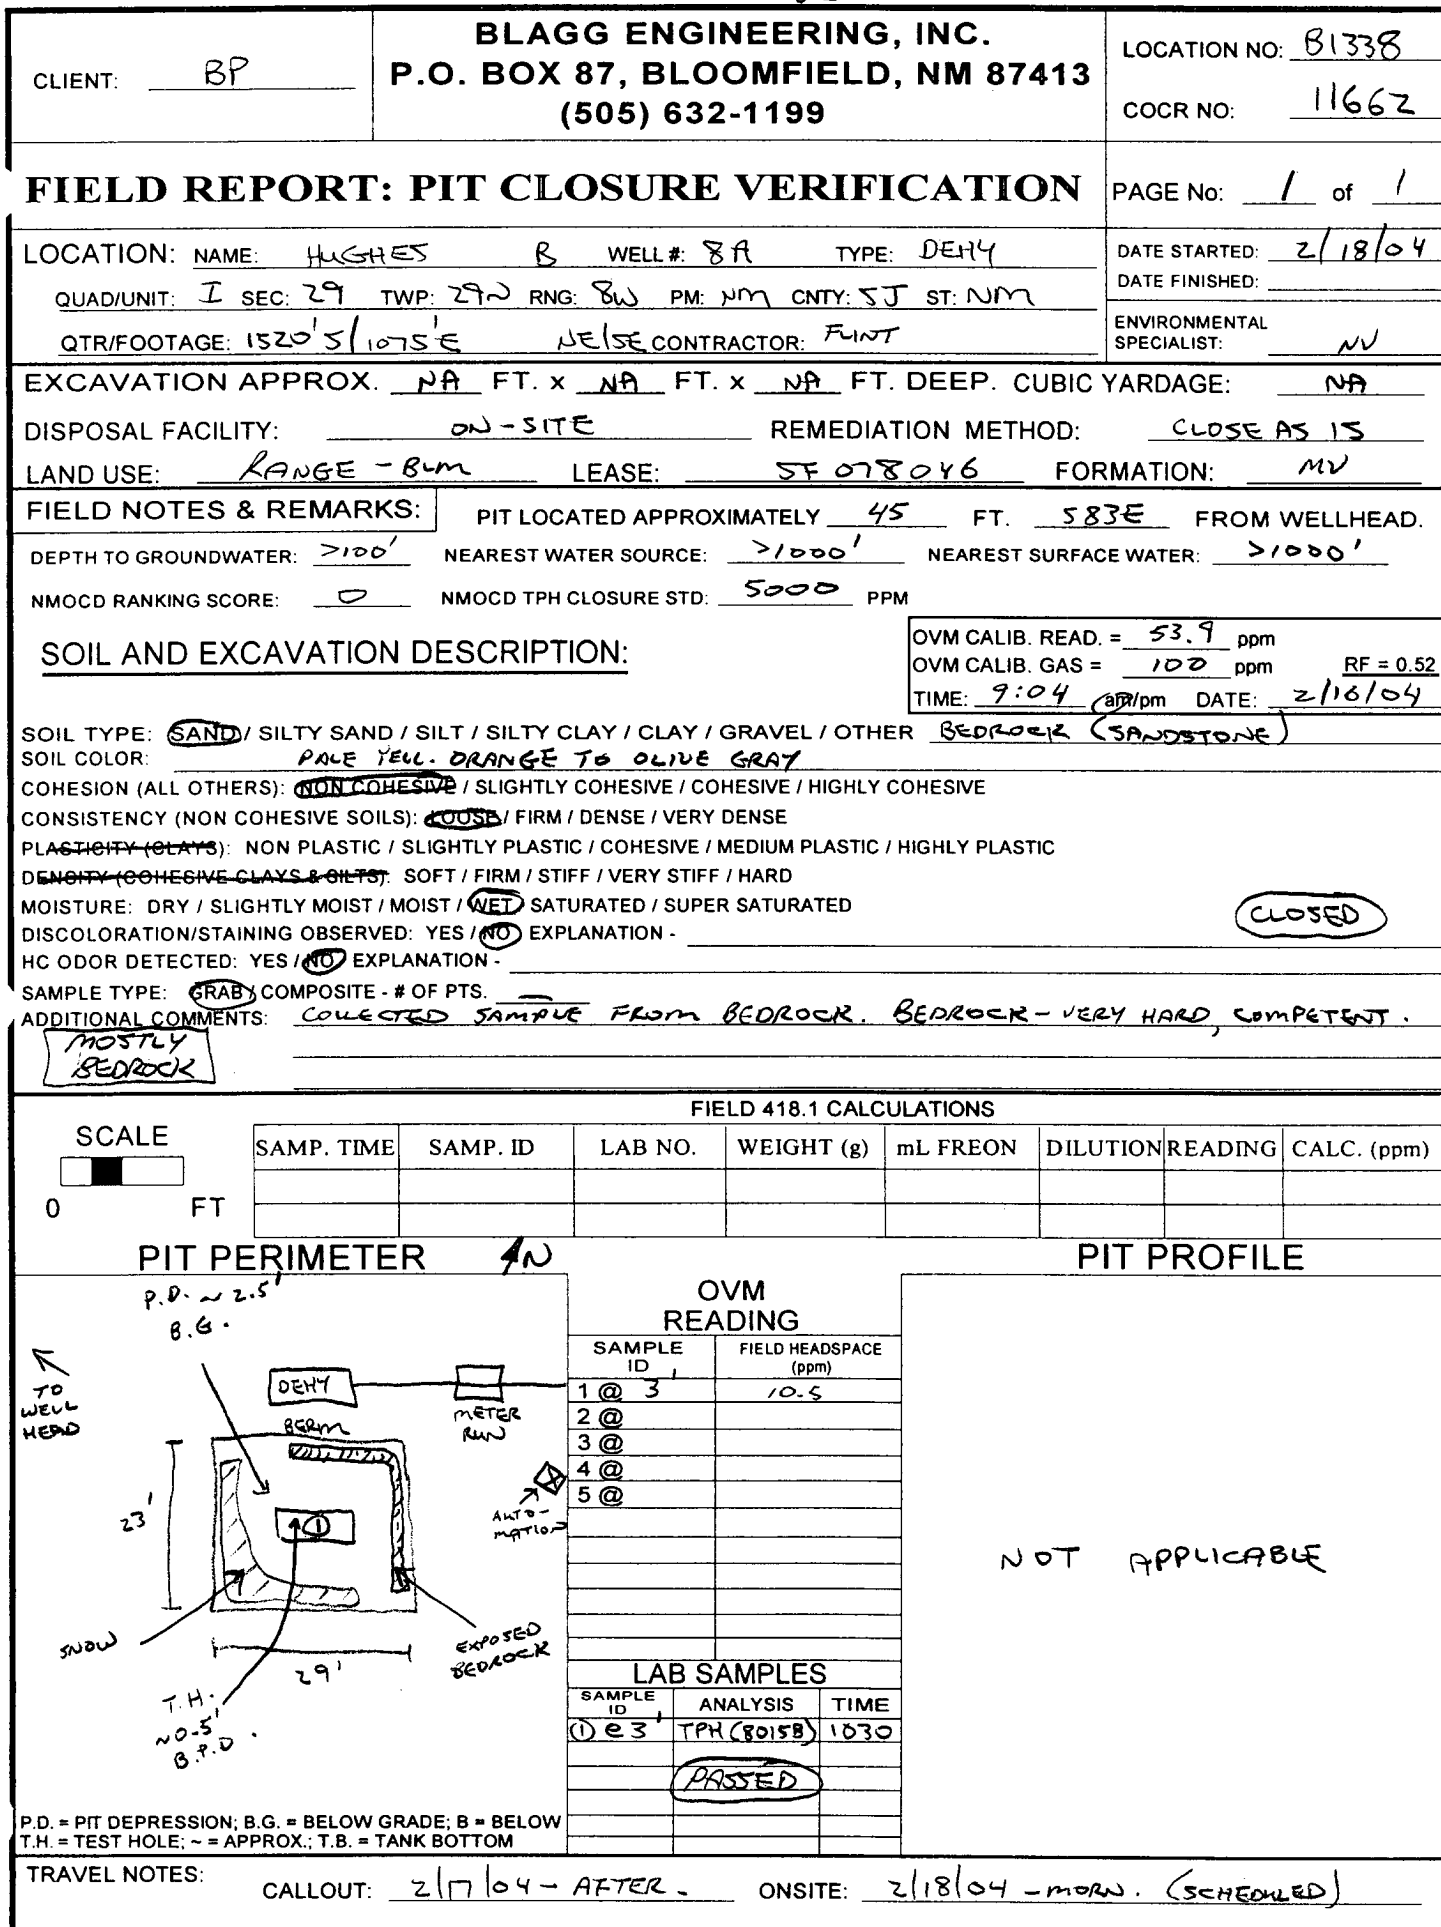 BLAGG ENGINEERING, INC.
CLIENT: BP
P.O. BOX 87, BLOOMFIELD, NM 87413
(505) 632-1199
LOCATION NO: B1338
COCR NO: 11662
FIELD REPORT: PIT CLOSURE VERIFICATION
PAGE No: 1 of 1
LOCATION: NAME: HUGHES B WELL #: 8A TYPE: DEHY
QUAD/UNIT: I SEC: 29 TWP: 29N RNG: 8W PM: NM CNTY: SJ ST: NM
QTR/FOOTAGE: 1520'S/1075'E NE/SE CONTRACTOR: FLINT
DATE STARTED: 2/18/04
DATE FINISHED:
ENVIRONMENTAL
SPECIALIST: NV
EXCAVATION APPROX. NA FT. x NA FT. x NA FT. DEEP. CUBIC YARDAGE: NA
DISPOSAL FACILITY: ON-SITE REMEDIATION METHOD: CLOSE AS IS
LAND USE: RANGE - BLM LEASE: SF 078046 FORMATION: MV
FIELD NOTES & REMARKS: PIT LOCATED APPROXIMATELY 45 FT. S83E FROM WELLHEAD.
DEPTH TO GROUNDWATER: >100' NEAREST WATER SOURCE: >1000' NEAREST SURFACE WATER: >1000'
NMOCD RANKING SCORE: 0 NMOCD TPH CLOSURE STD: 5000 PPM
SOIL AND EXCAVATION DESCRIPTION:
OVM CALIB. READ. = 53.9 ppm
OVM CALIB. GAS = 100 ppm RF = 0.52
TIME: 9:04 am/pm DATE: 2/18/04
SOIL TYPE: SAND / SILTY SAND / SILT / SILTY CLAY / CLAY / GRAVEL / OTHER BEDROCK (SANDSTONE)
SOIL COLOR: PALE YELL. ORANGE TO OLIVE GRAY
COHESION (ALL OTHERS): NON COHESIVE / SLIGHTLY COHESIVE / COHESIVE / HIGHLY COHESIVE
CONSISTENCY (NON COHESIVE SOILS): LOOSE / FIRM / DENSE / VERY DENSE
PLASTICITY (CLAYS): NON PLASTIC / SLIGHTLY PLASTIC / COHESIVE / MEDIUM PLASTIC / HIGHLY PLASTIC
DENSITY (COHESIVE CLAYS & SILTS): SOFT / FIRM / STIFF / VERY STIFF / HARD
MOISTURE: DRY / SLIGHTLY MOIST / MOIST / WET / SATURATED / SUPER SATURATED
CLOSED
DISCOLORATION/STAINING OBSERVED: YES / NO EXPLANATION -
HC ODOR DETECTED: YES / NO EXPLANATION -
SAMPLE TYPE: GRAB / COMPOSITE - # OF PTS. —
ADDITIONAL COMMENTS: COLLECTED SAMPLE FROM BEDROCK. BEDROCK - VERY HARD, COMPETENT.
MOSTLY
BEDROCK
FIELD 418.1 CALCULATIONS
SCALE
0 FT
SAMP. TIME SAMP. ID LAB NO. WEIGHT (g) mL FREON DILUTION READING CALC. (ppm)
PIT PERIMETER N
P.D. ~ 2.5'
B.G.
TO
WELL
HEAD
DEHY
METER
RUN
BERM
AUTO-
MATION
23'
1
SNOW
29'
EXPOSED
BEDROCK
T.H.
~0.5'
B.P.D.
P.D. = PIT DEPRESSION; B.G. = BELOW GRADE; B = BELOW
T.H. = TEST HOLE; ~ = APPROX.; T.B. = TANK BOTTOM
OVM
READING
SAMPLE ID FIELD HEADSPACE (ppm)
1 @ 3' 10.5
2 @
3 @
4 @
5 @
LAB SAMPLES
SAMPLE ID ANALYSIS TIME
① @ 3' TPH (8015B) 1030
PASSED
PIT PROFILE
NOT APPLICABLE
TRAVEL NOTES: CALLOUT: 2/17/04 - AFTER. ONSITE: 2/18/04 - MORN. (SCHEDULED)